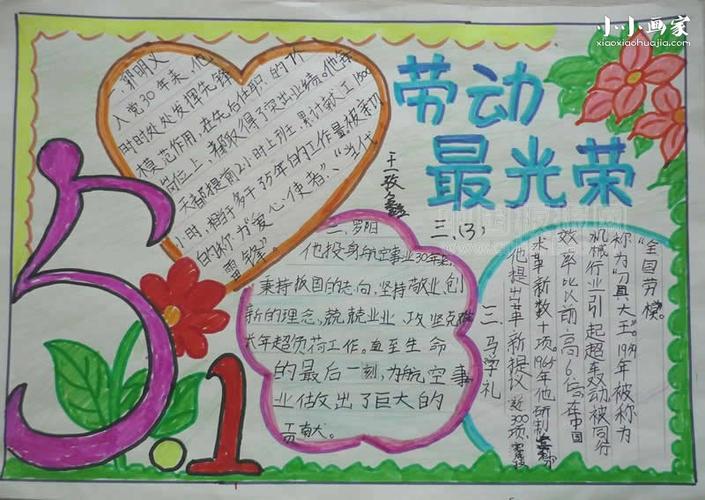 小小画家
xiaoxiaohuajia.com
劳动
最光荣
三.(3)
一.郭明义
入党30年来,他
时时处处发挥先锋
模范作用,在先后任职的
岗位上,都取得了突出业绩。他每
天都提前2小时上班,累计献工1500
小时,相当于多干5年的工作量,被亲切
的称为"爱心使者"、"当代
雷锋"。
二.罗阳
他投身航空事业30年来,
秉持报国的志向,坚持敬业创
新的理念,兢兢业业,攻坚克难
长年超负荷工作。直至生命
的最后一刻,为航空事
业做出了巨大的
贡献。
三.马学礼
他提出革新提议近300项,
术革新数十项。1965年他研制
效率比以前高6倍。在中国
机械行业引起轰动被同行
称为"刀具大王"。1979年被称为
"全国劳模"。
5.1